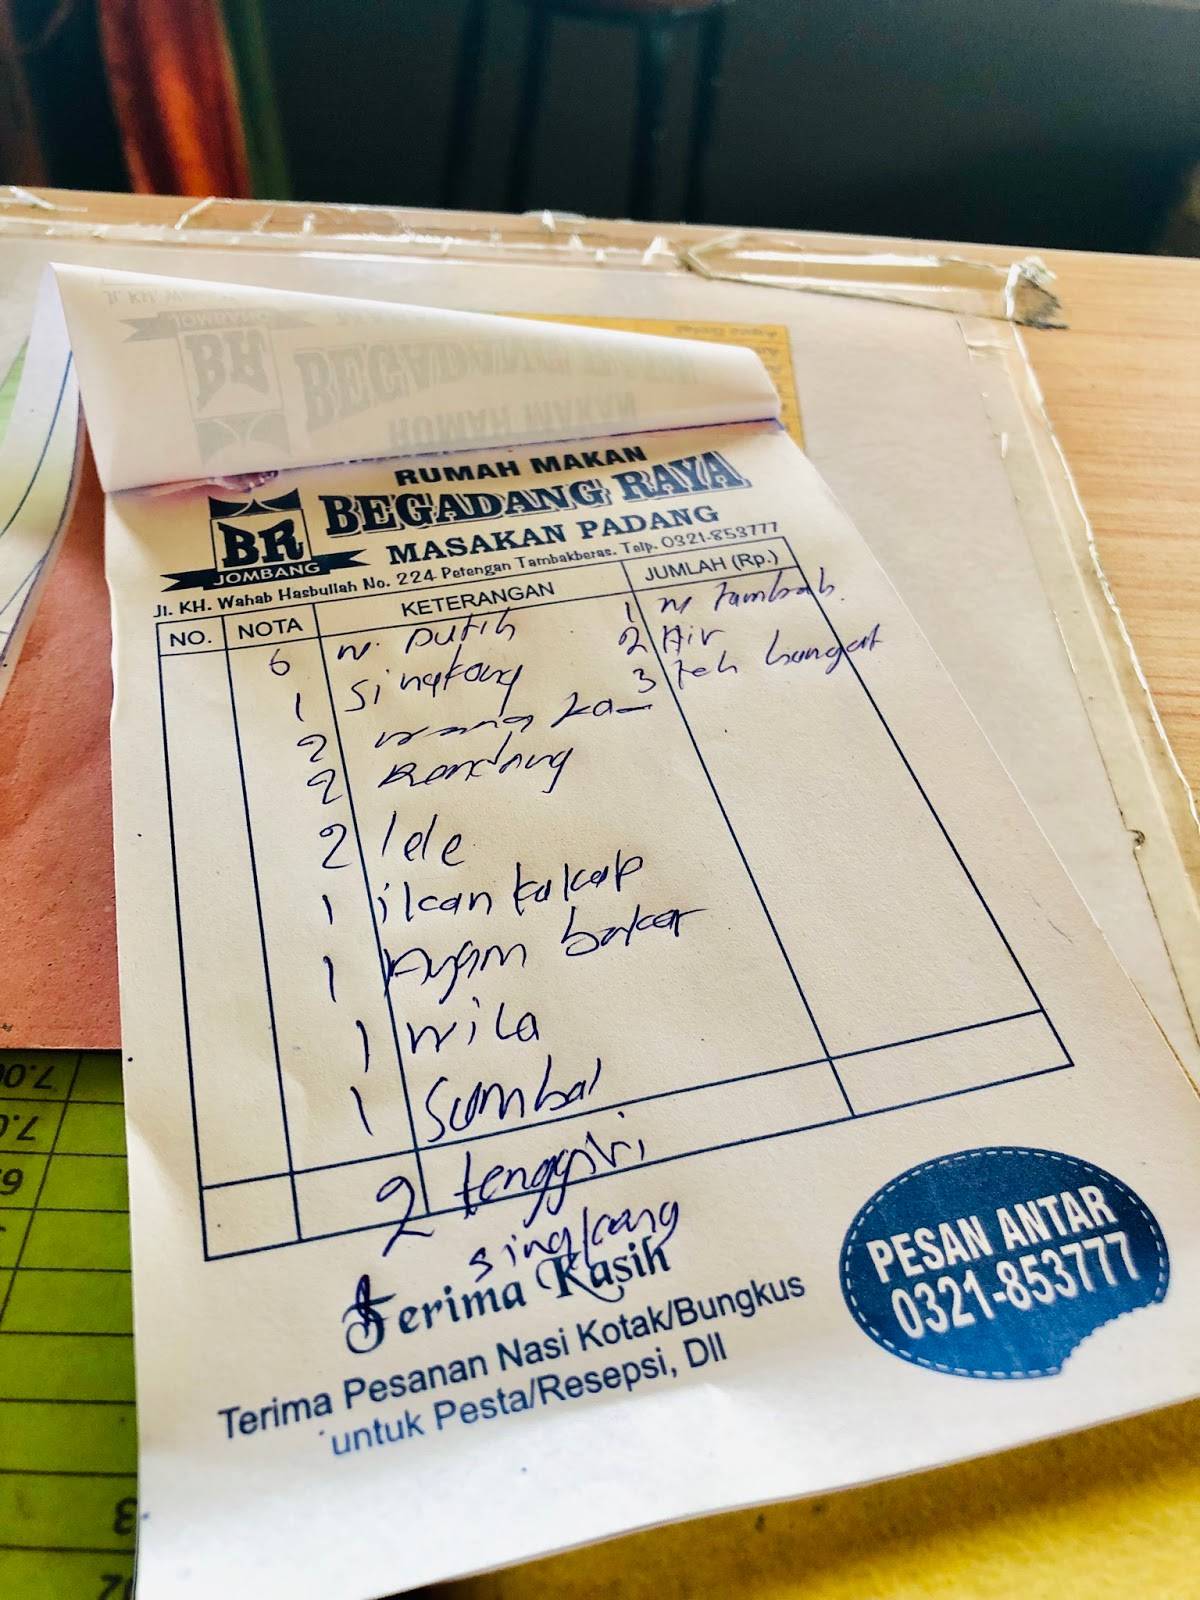 RUMAH MAKAN
BEGADANG RAYA
BR
JOMBANG
MASAKAN PADANG
Jl. KH. Wahab Hasbullah No. 224 Petengan Tambakberas. Telp. 0321-853777
NO. NOTA KETERANGAN JUMLAH (Rp.)
6 n. putih 1 n tambah.
1 singkong 2 Air
2 3 teh hangat
2 Rendang
2 lele
1 ikan kakap
1 Ayam bakar
1 nila
1 Sambal
2 tenggiri
singkong
Terima Kasih
Terima Pesanan Nasi Kotak/Bungkus
untuk Pesta/Resepsi, Dll
PESAN ANTAR
0321-853777